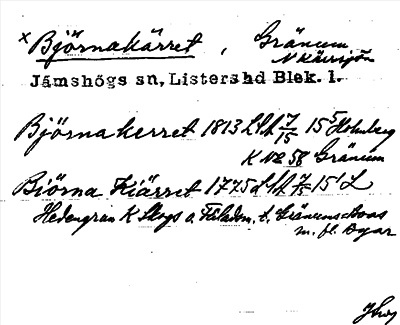 x Björnakärret, Gränum
N Kärrsjön
Jämshögs sn, Listers hd Blek. l.
Björnakerret 1813 LSA 7/15 15⁵ Holmberg
K N2 58 Gränum
Biörna Kiärret 1775 LSA 7/15 15' L
Hedengran K Skogs o. Fäladsm. t. Gränums boas
m. fl. ägar